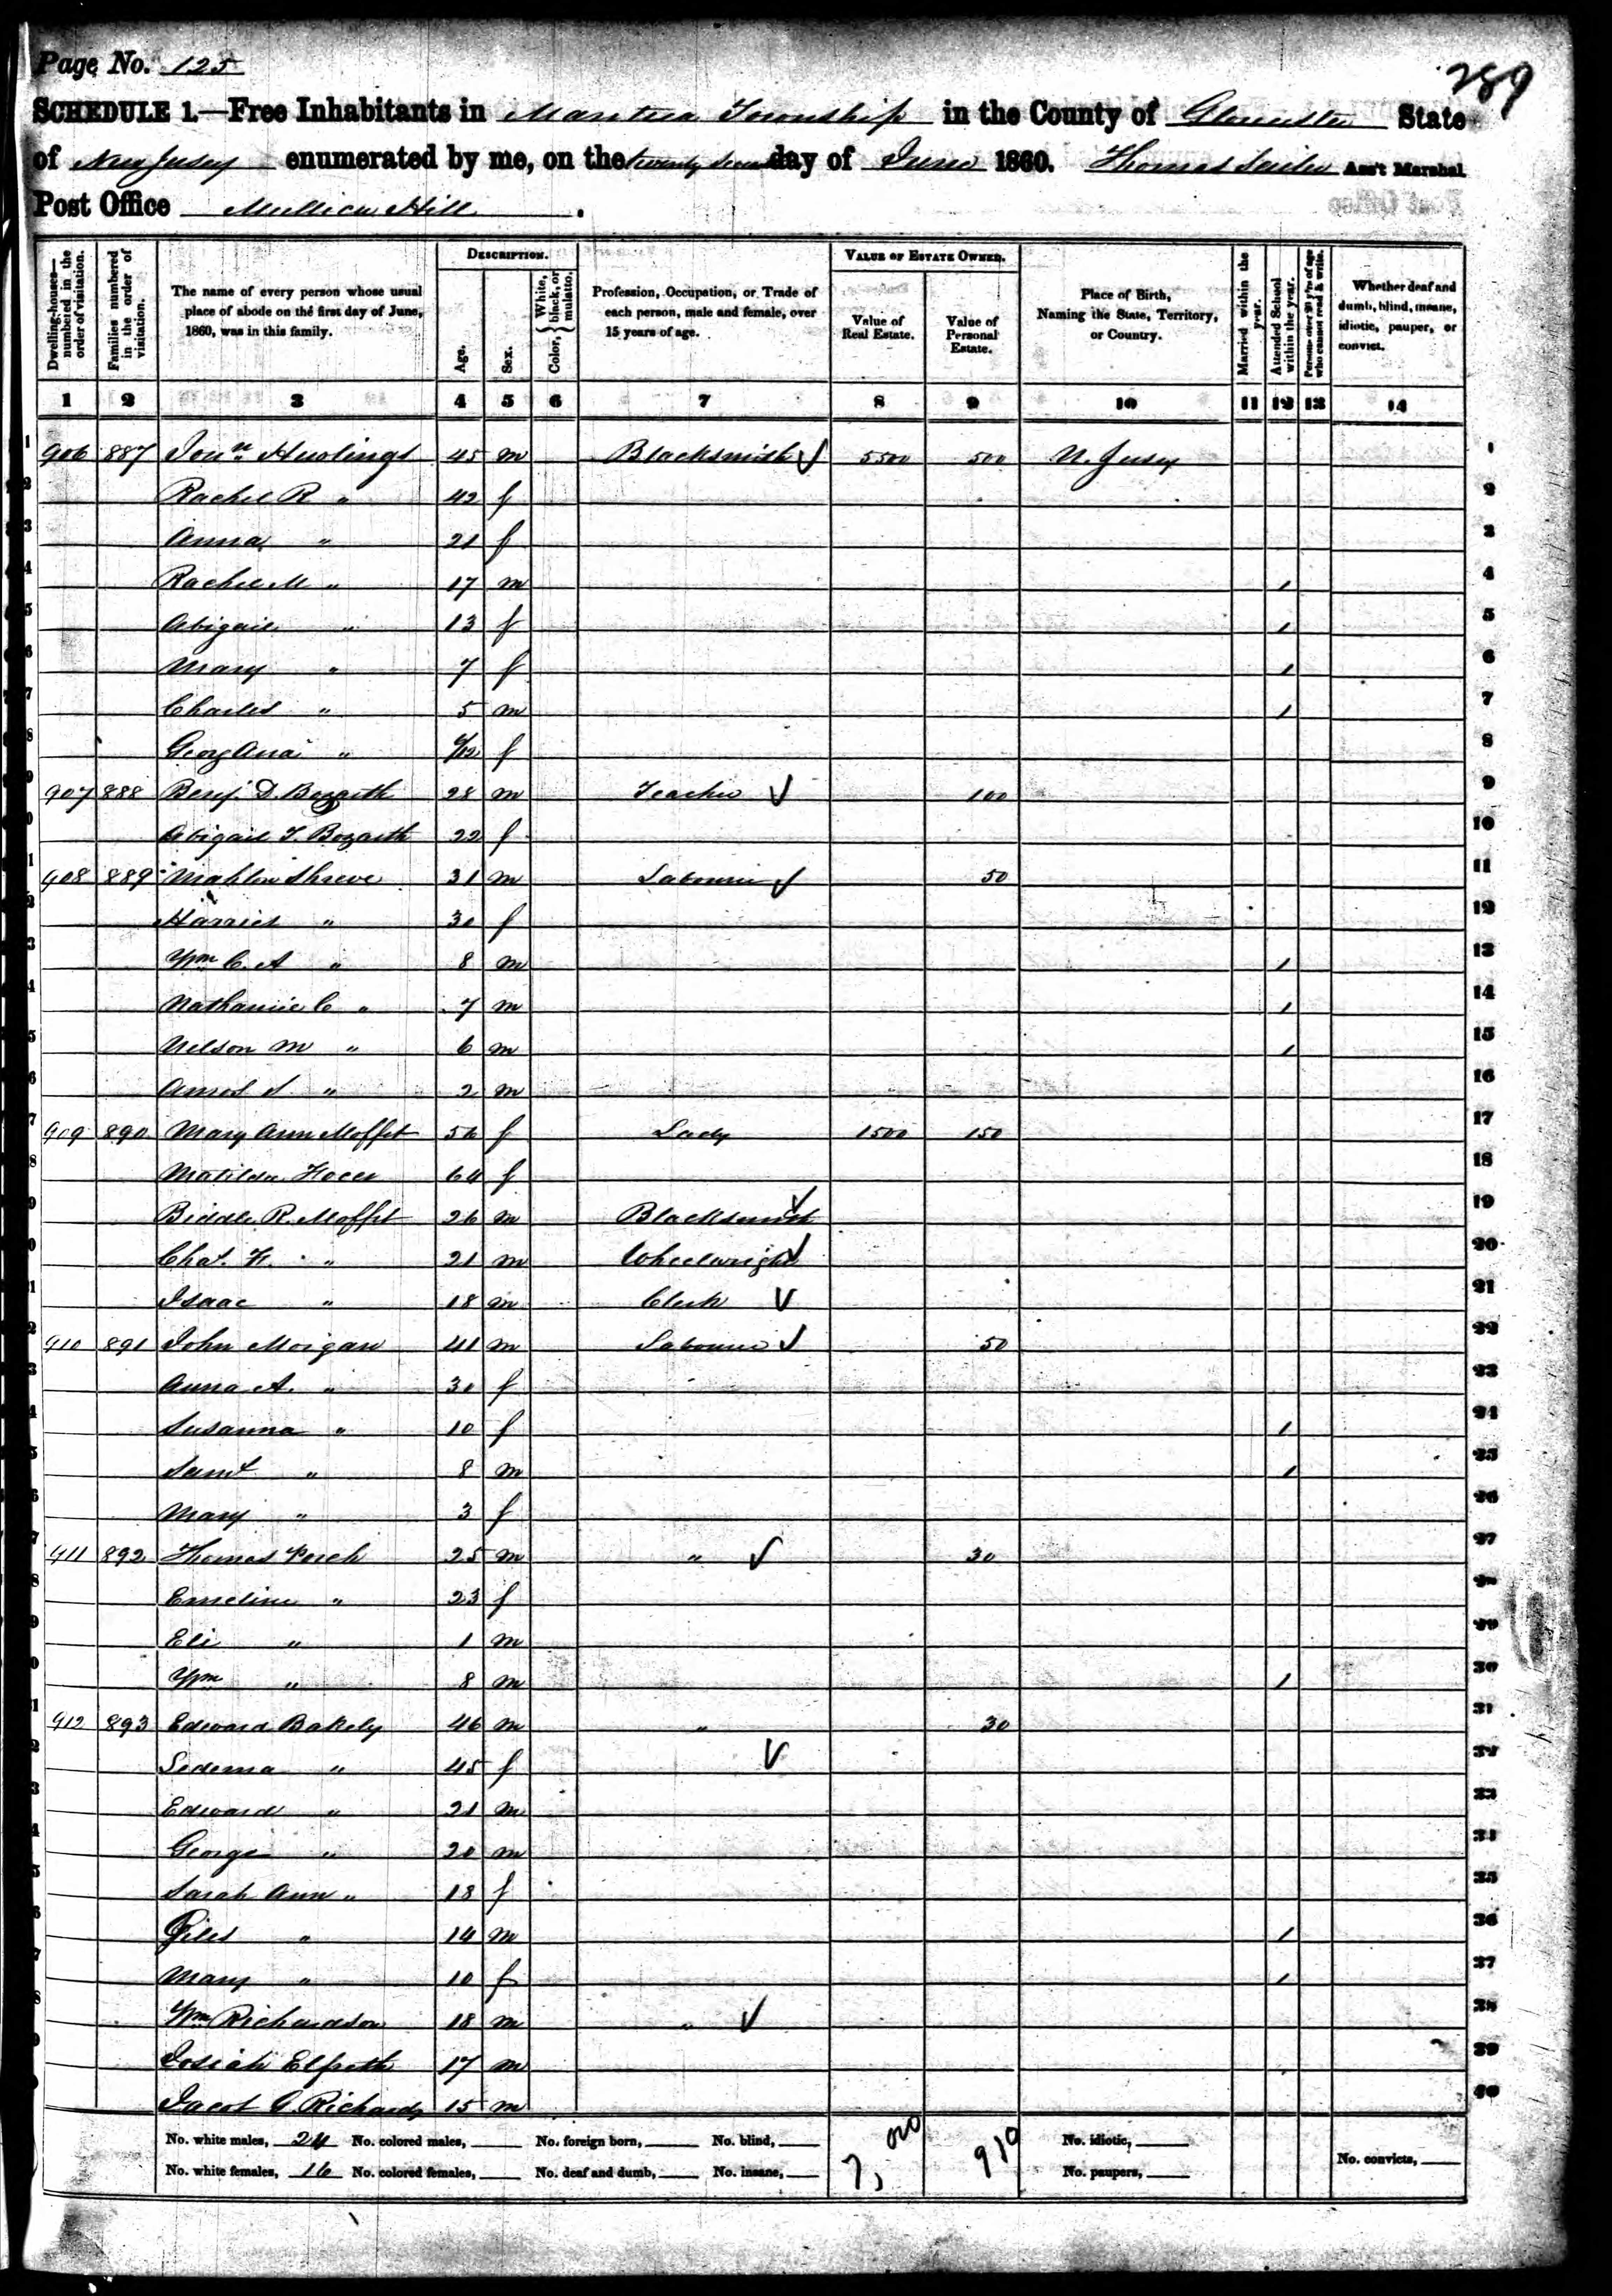 Page No. 125
289
SCHEDULE 1.—Free Inhabitants in Mantua Township in the County of Gloucester State
of New Jersey enumerated by me, on the twenty second day of June 1860. Thomas Ass't Marshal
Post Office Mullica Hill.
Dwelling-houses—numbered in the order of visitation. Families numbered in the order of visitation. The name of every person whose usual place of abode on the first day of June, 1860, was in this family. DESCRIPTION. Age. Sex. Color, {White, black, or mulatto. Profession, Occupation, or Trade of each person, male and female, over 15 years of age. VALUE OF ESTATE OWNED. Value of Real Estate. Value of Personal Estate. Place of Birth, Naming the State, Territory, or Country. Married within the year. Attended School within the year. Persons over 20 y'rs of age who cannot read & write. Whether deaf and dumb, blind, insane, idiotic, pauper, or convict.
1 2 3 4 5 6 7 8 9 10 11 12 13 14
1 906 887 Jonn Hulings 45 m Blacksmith 5500 500 N. Jersey 1
2 Rachel R " 42 f 2
3 Anna " 21 f 3
4 Rachel M " 17 m / 4
5 Abigail " 13 f / 5
6 Mary " 7 f / 6
7 Charles " 5 m / 7
8 GeorgAnna " /12 f 8
9 907 888 Benj. D. Bozarth 28 m Teacher 100 9
10 Abigail T. Bozarth 22 f 10
11 908 889 Mahlon Shreve 31 m Labourer 50 11
12 Harriet " 30 f 12
13 Wm C. A " 8 m / 13
14 Nathaniel C " 7 m / 14
15 Nelson M " 6 m / 15
16 Amos S " 2 m 16
17 909 890 Mary Ann Moffet 56 f Lady 1500 150 17
18 Matilda 64 f 18
19 Biddle R. Moffet 26 m Blacksmith 19
20 Chas. F. " 21 m Wheelwright 20
21 Isaac " 18 m Clerk 21
22 910 891 John Morgan 41 m Labourer 50 22
23 Anna A. " 30 f 23
24 Susanna " 10 f / 24
25 Saml " 8 m / 25
26 Mary " 3 f 26
27 911 892 Thomas Peich 25 m " 30 27
28 Emeline " 23 f 28
29 Eli " 1 m 29
30 Wm " 8 m / 30
31 912 893 Edward Bakely 46 m " 30 31
32 Sedema " 45 f 32
33 Edward " 21 m 33
34 George " 20 m 34
35 Sarah Ann " 18 f 35
36 Giles " 14 m / 36
37 Mary " 10 f / 37
38 Wm Richardson 18 m " 38
39 Josiah Elfreth 17 m 39
40 Jacob G. Richards 15 m 40
No. white males, 24 No. colored males, No. foreign born, No. blind, 7,000 910 No. idiotic,
No. white females, 16 No. colored females, No. deaf and dumb, No. insane, No. paupers, No. convicts,